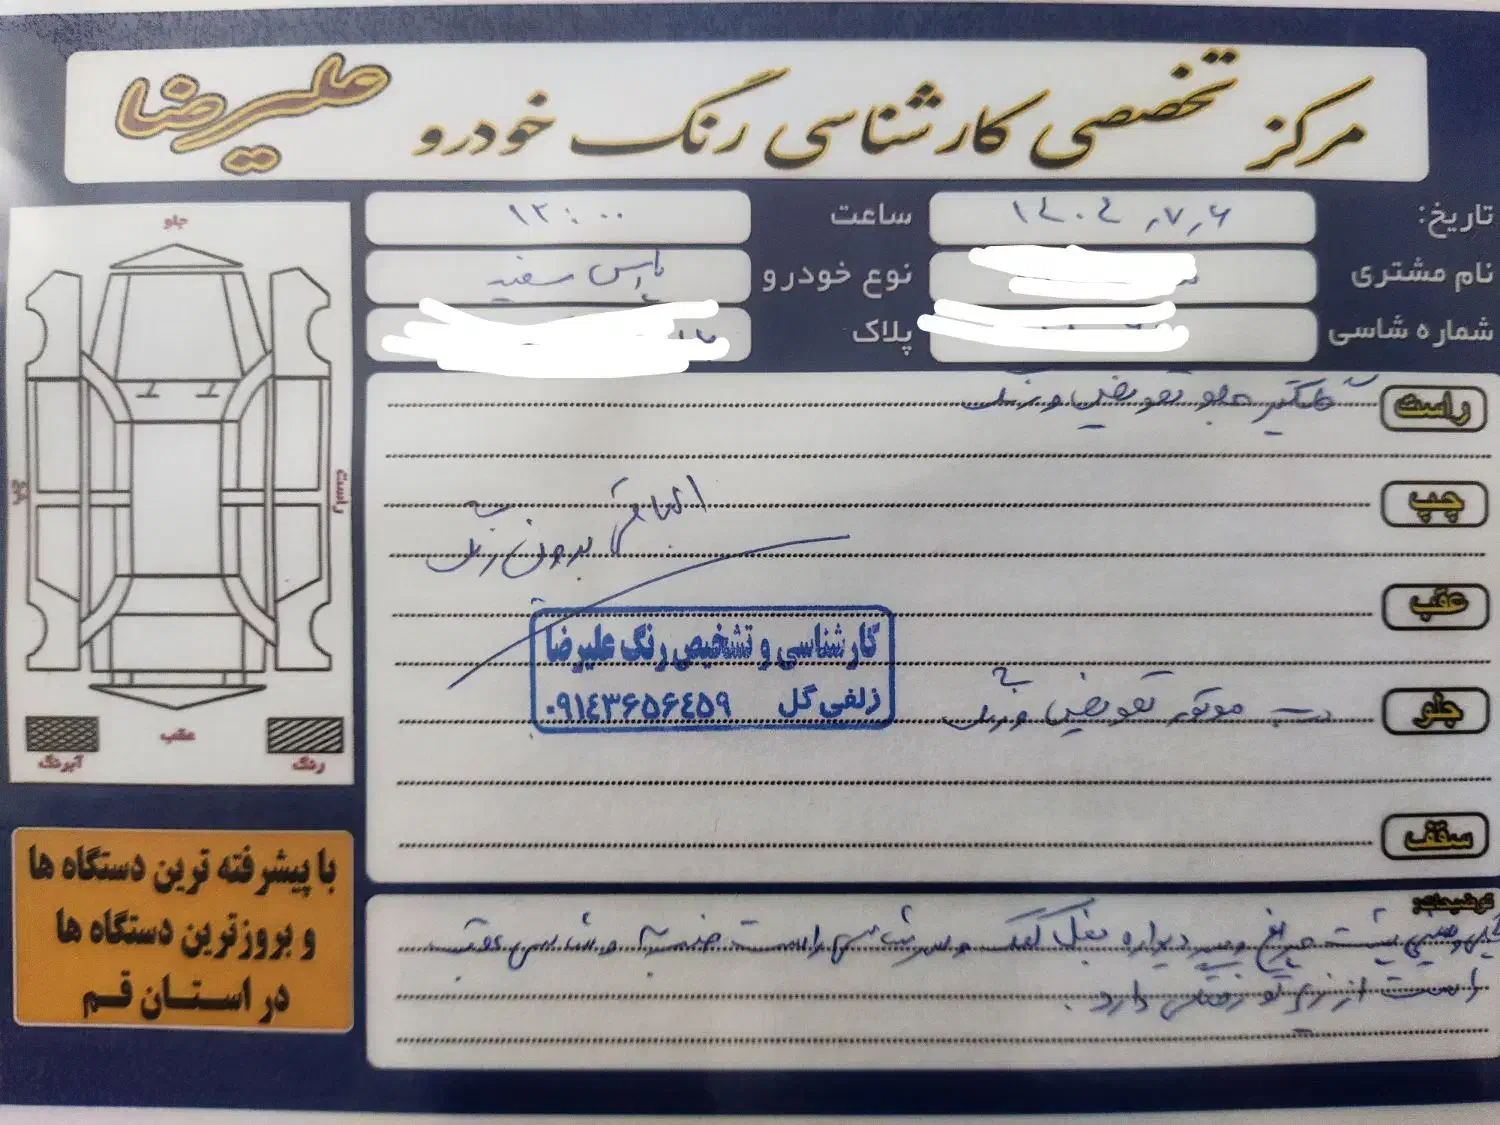 مرکز تخصصی کارشناسی رنگ خودرو علیرضا
تاریخ: ۱۴۰۴٫۷٫۶ ساعت ۱۲:۰۰
نام مشتری نوع خودرو پارس سفید
شماره شاسی پلاک
جلو
راست
عقب
رنگ
آبرنگ
راست گلگیر جلو تعویض و رنگ
چپ
الباقی بدون رنگ
عقب
کارشناسی و تشخیص رنگ علیرضا
زلفی گل ۰۹۱۴۳۶۵۶۴۵۹
جلو درب موتور تعویض و رنگ
سقف
توضیحات:
سینی پشت چراغ و دیواره بغل کمک و سرشاسی راست ضربه و شاسی عقب
راست از زیر تو رفتگی دارد.
با پیشرفته ترین دستگاه ها
و بروزترین دستگاه ها
در استان قم